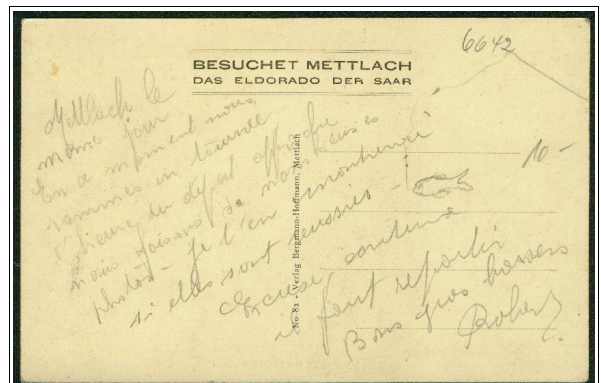 6642
BESUCHET METTLACH
DAS ELDORADO DER SAAR
Mettlach le
même jour
En ce moment nous
sommes en tournée
l'heure du départ approche
nous faisons de nombreuses
photos - je t'en montrerai
si elles sont réussies -
Excuse écriture
il faut repartir
Bons gros baisers
Robert.
10-
No 82 - Verlag Bergmann-Hoffmann, Mettlach